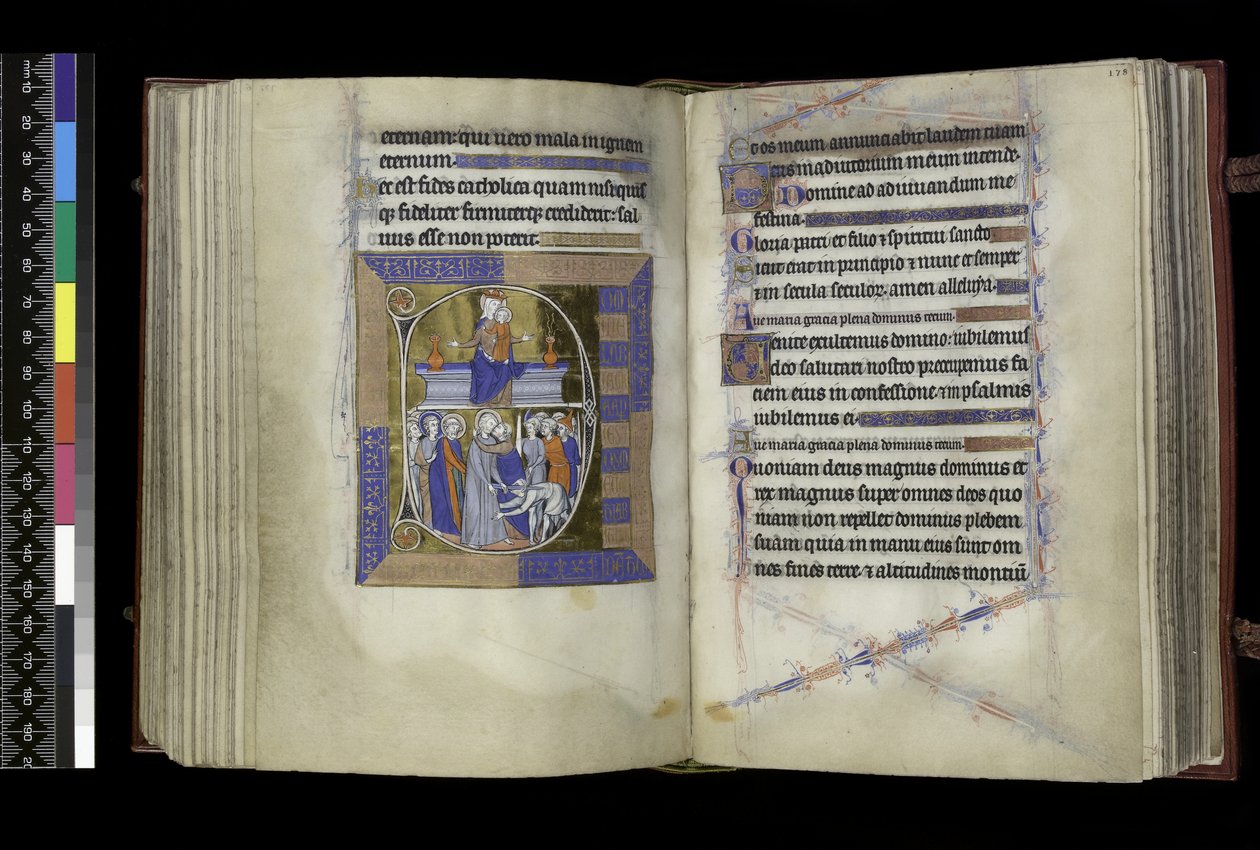 eternam: qui uero mala in ignem
eternum.
Hec est fides catholica quam nisi quis
q₃ fideliter firmiterq₃ crediderit: sal
uus esse non poterit.
178
Et os meum annunciabit laudem tuam
Deus in adiutorium meum intende.
Domine ad adiuuandum me
festina.
Gloria patri et filio ⁊ spiritui sancto
Sicut erat in principio ⁊ nunc et semper
⁊ in secula seculoꝝ. amen alleluya.
Aue maria gracia plena dominus tecum.
Venite exultemus domino: iubilemus
deo salutari nostro preoccupemus fa
ciem eius in confessione ⁊ in psalmis
iubilemus ei.
Aue maria gracia plena dominus tecum.
Quoniam deus magnus dominus et
rex magnus super omnes deos quo
niam non repellet dominus plebem
suam quia in manu eius sunt om
nes fines terre ⁊ altitudines montiū
mm 10
20
30
40
50
60
70
80
90
100
110
120
130
140
150
160
170
180
190